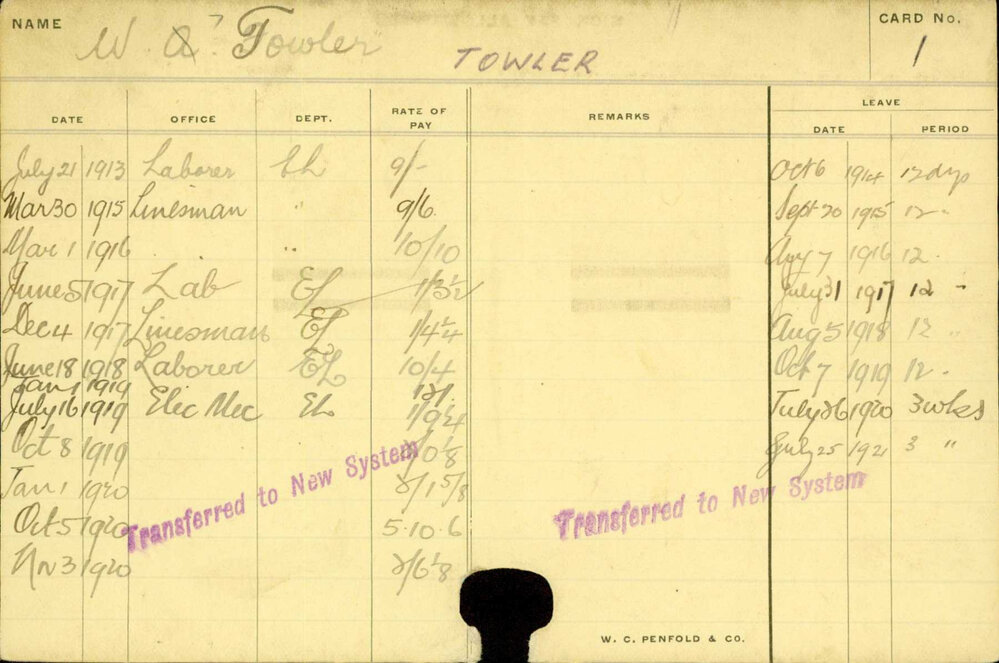 NAME W. A. Towler TOWLER CARD No. 1
LEAVE
DATE OFFICE DEPT. RATE OF PAY REMARKS DATE PERIOD
July 21 1913 Laborer EL 9/- Oct 6 1914 12 dys
Mar 30 1915 Linesman " 9/6 Sept 20 1915 12 "
Mar 1 1916 " 10/10 Aug 7 1916 12 "
June 5 1917 Lab EL 1/3½ July 31 1917 12 "
Dec 4 1917 Linesman EL 1/4¼ Aug 5 1918 12 "
June 18 1918 Laborer EL 10/4 Oct 7 1919 12 "
Jan 1 1919
July 16 1919 Elec Mec EL 1/9¼ July 26 1920 3 wks
Oct 8 1919 July 25 1921 3 "
Jan 1 1920 2/1 5/8
Oct 5 1920 5.10.6
Nov 3 1920 2/6 1/8
Transferred to New System
Transferred to New System
W. C. PENFOLD & CO.